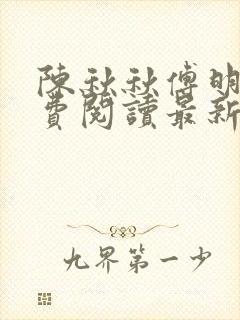 陳秋秋傅明
費閱讀最新
九界第一少